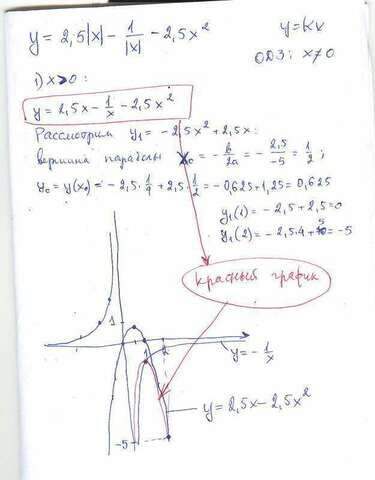 y = 2,5|x| - 1/|x| - 2,5x²
y = kx
ОДЗ: x≠0
1) x>0:
y = 2,5x - 1/x - 2,5x²
Рассмотрим y₁ = -2,5x² + 2,5x:
вершина параболы x₀ = -b/2a = -2,5/-5 = 1/2;
y₀ = y(x₀) = -2,5·1/4 + 2,5·1/2 = -0,625+1,25 = 0,625
y₁(1) = -2,5+2,5=0
y₁(2) = -2,5·4+5=-5
красный график
1
1
2
y = -1/x
y = 2,5x - 2,5x²
-5